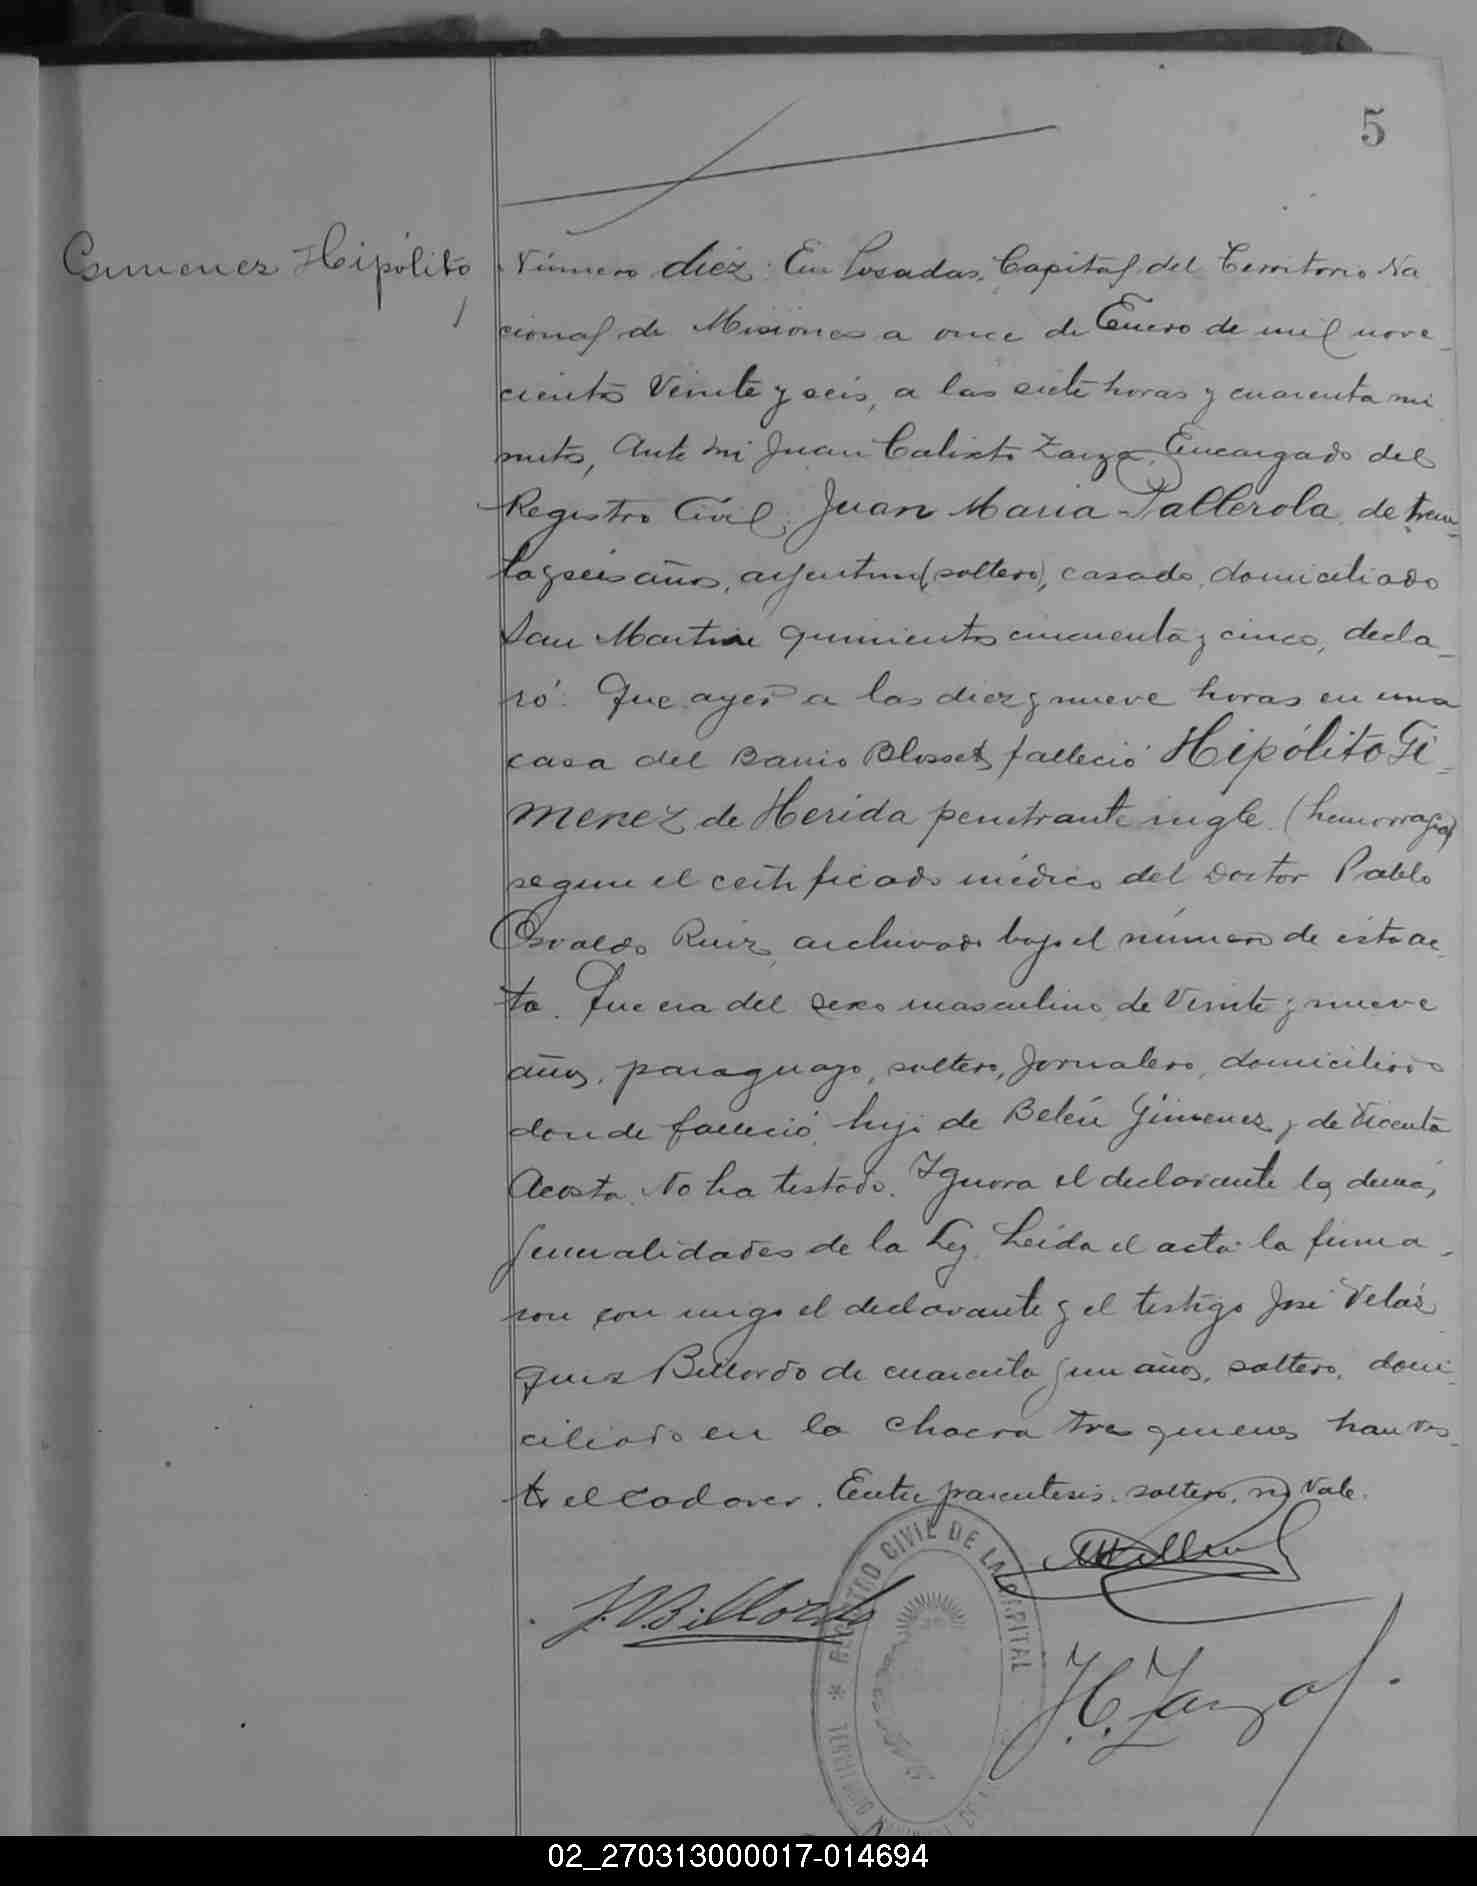 5
Gimenez Hipólito
Número diez: En Posadas, Capital del Territorio Na
cional de Misiones a once de Enero de mil nove_
cientos Veinte y seis, a las siete horas y cuarenta mi
nutos, Ante mi Juan Calixto Zarza, Encargado del
Registro Civil, Juan Maria Pallerola, de trein_
ta y seis años, argentino, (soltero), casado, domiciliado
San Martin quinientos cincuenta y cinco, decla_
ró: Que ayer a las diez y nueve horas en una
casa del Barrio Blosset, falleció Hipólito Gi_
menez de Herida penetrante ingle (hemorragia)
segun el certificado médico del Doctor Pablo
Osvaldo Ruiz, archivado bajo el número de esta ac_
ta. Que era del sexo masculino, de Veinte y nueve
años, paraguayo, soltero, Jornalero, domiciliado
donde falleció, hijo de Belén Gimenez y de Vicenta
Acosta. No ha testado. Ignora el declarante las demás
generalidades de la Ley. Leida el acta la firma_
ron con migo el declarante y el testigo José Veláz
quez Billordo de cuarenta y un años, soltero, domi_
ciliado en la chacra tres quienes han vis_
to el cadaver. Entre parentesis, soltero, no Vale.
J.V.Billordo
J.C. Zarza
REGISTRO CIVIL DE LA CAPITAL
02_270313000017-014694